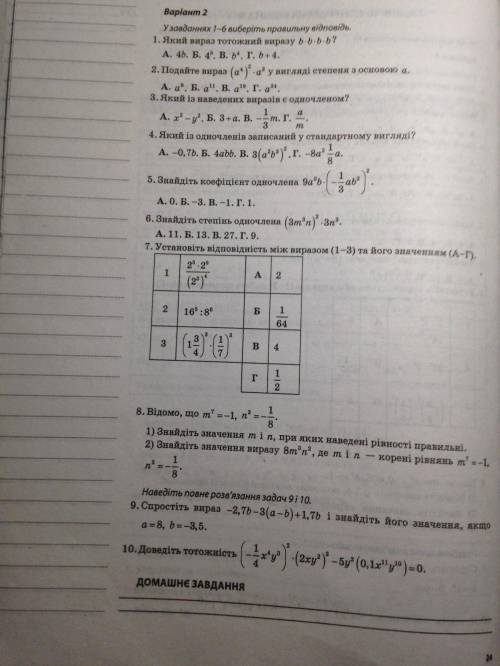 Варіант 2
У завданнях 1–6 виберіть правильну відповідь.
1. Який вираз тотожний виразу b·b·b·b?
А. 4b. Б. 4⁵. В. b⁴. Г. b+4.
2. Подайте вираз (a⁴)²·a³ у вигляді степеня з основою a.
А. a⁹. Б. a¹¹. В. a¹⁰. Г. a²⁴.
3. Який із наведених виразів є одночленом?
А. x²−y². Б. 3+a. В. −1/3 m. Г. a/m.
4. Який із одночленів записаний у стандартному вигляді?
А. −0,7b. Б. 4abb. В. 3(a²b³)². Г. −8a² 1/8 a.
5. Знайдіть коефіцієнт одночлена 9a²b·(−1/3 ab²)².
А. 0. Б. −3. В. −1. Г. 1.
6. Знайдіть степінь одночлена (3m³n)²·3n³.
А. 11. Б. 13. В. 27. Г. 9.
7. Установіть відповідність між виразом (1–3) та його значенням (А–Г).
1 2⁵·2⁶/(2³)⁴ А 2
2 16⁵:8⁶ Б 1/64
3 (1 3/4)³·(1/7)³ В 4
Г 1/2
8. Відомо, що m⁷=−1, n³=−1/8.
1) Знайдіть значення m і n, при яких наведені рівності правильні.
2) Знайдіть значення виразу 8m³n², де m і n — корені рівнянь m⁷=−1,
n³=−1/8.
Наведіть повне розв'язання задач 9 і 10.
9. Спростіть вираз −2,7b−3(a−b)+1,7b і знайдіть його значення, якщо
a=8, b=−3,5.
10. Доведіть тотожність (−1/4 x⁴y³)²·(2xy²)³−5y²(0,1x¹¹y¹⁰)=0.
ДОМАШНЄ ЗАВДАННЯ